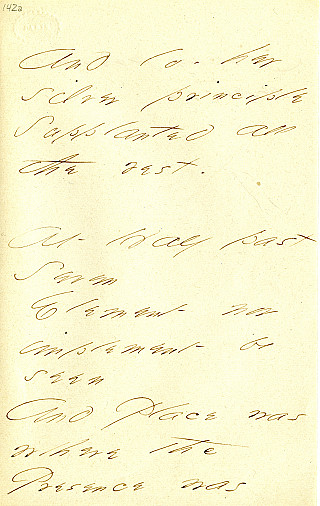 142a
And lo - her
silver principle
Supplanted all
the rest.
At Half past
Seven
Element nor
implement be
seen
And Place was
where the
Presence was